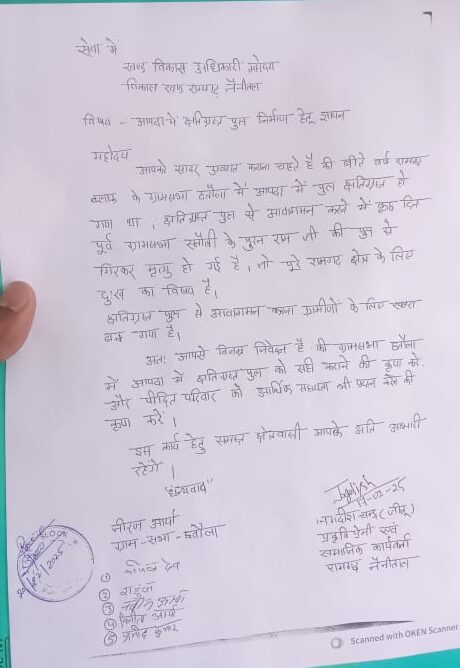 सेवा में
खण्ड विकास अधिकारी महोदय
विकास खण्ड रामगढ़ नैनीताल
विषय - आपदा में क्षतिग्रस्त पुल निर्माण हेतु ज्ञापन
महोदय
आपको सादर अवगत कराना चाहते है की बीते वर्ष रामगढ़
ब्लाक के ग्रामसभा में आपदा में पुल क्षतिग्रस्त हो
गया था, क्षतिग्रस्त पुल से आवागमन करने में कुछ दिन
पूर्व ग्रामसभा के पुरन राम जी की पुल से
गिरकर मृत्यु हो गई है, जो पूरे रामगढ़ क्षेत्र के लिए
दुःख का विषय है।
क्षतिग्रस्त पुल से आवागमन करना ग्रामीणों के लिए खतरा
बन गया है।
अतः आपसे विनम्र निवेदन है की ग्रामसभा
में आपदा में क्षतिग्रस्त पुल को सही कराने की कृपा करे.
और पीड़ित परिवार को आर्थिक सहायता भी प्रदान की
कृपा करे।
इस कार्य हेतु समस्त क्षेत्रवासी आपके अति आभारी
रहेंगे।
"धन्यवाद"
Jagdish
17-02-25
नीरज आर्या
ग्राम-सभा-
जगदीश चन्द्र (जीतू)
प्रकृति प्रेमी एवं
सामाजिक कार्यकर्ता
रामगढ़ नैनीताल
①
② राहुल
③
④ आर्या
⑤ कुमार
BLOCK
2025
Scanned with OKEN Scanner